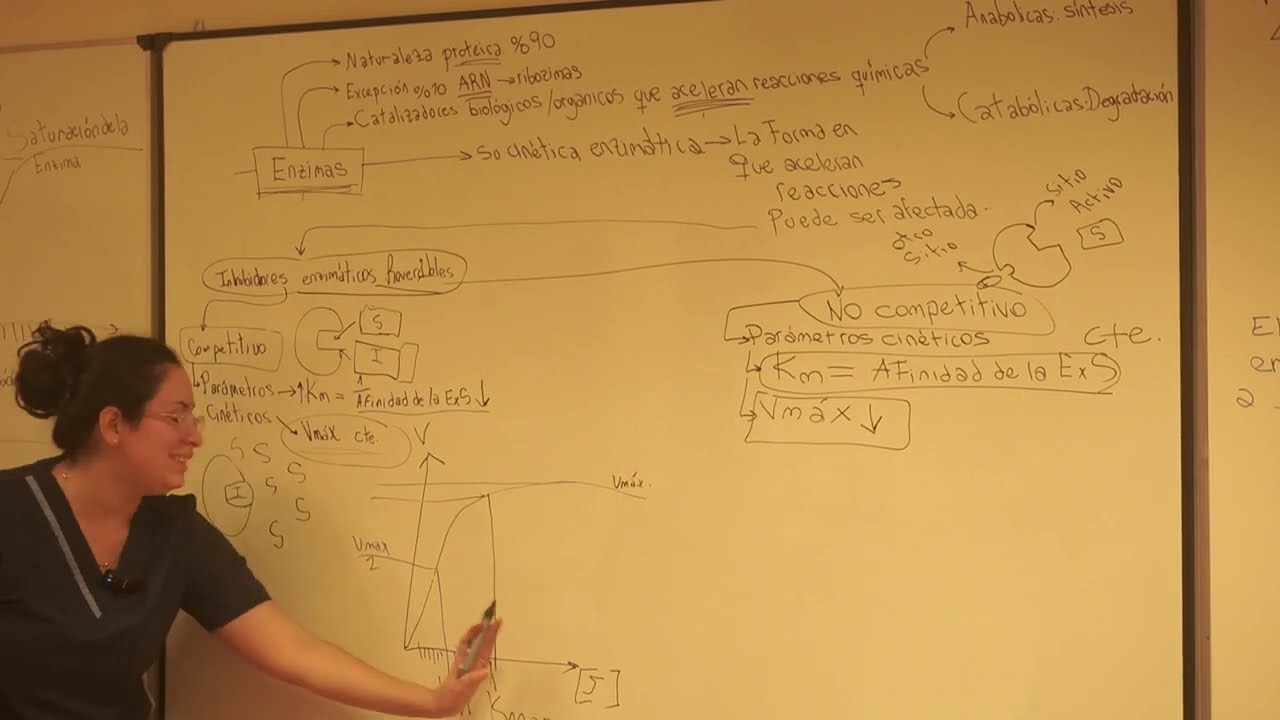 Saturación de la
Enzima
Naturaleza proteica %90
Excepción %10 ARN → ribozimas
Catalizadores biológicos/orgánicos que aceleran reacciones químicas
Anabólicas: síntesis
Catabólicas: Degradación
Enzimas
So cinética enzimática → La Forma en
que aceleran
reacciones
Puede ser afectada.
sitio
Activo
S
otro
sitio
Inhibidores enzimáticos Reversibles
Competitivo
S
I
Parámetros → ↑Km = 1/Afinidad de la ExS ↓
cinéticos
Vmáx cte.
S S S S S S
I
V
Vmáx.
Vmax
2
[S]
No competitivo
Parámetros cinéticos
cte.
Km = Afinidad de la ExS
Vmáx ↓
El
en
2